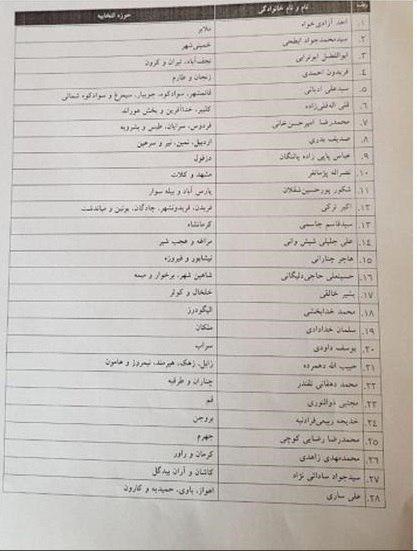 ردیف نام و نام خانوادگی حوزه انتخابیه
۱. احد آزادی‌خواه ملایر
۲. سیدمحمدجواد ابطحی خمینی‌شهر
۳. ابوالفضل ابوترابی نجف‌آباد، تیران و کرون
۴. فریدون احمدی زنجان و طارم
۵. سیدعلی ادیانی قائمشهر، سوادکوه، جویبار، سیمرغ و سوادکوه شمالی
۶. قلی اله‌قلی‌زاده کلیبر، خداآفرین و بخش هوراند
۷. محمدرضا امیرحسن‌خانی فردوس، سرایان، طبس و بشرویه
۸. صدیف بدری اردبیل، نمین، نیر و سرعین
۹. عباس پاپی زاده پالنگان دزفول
۱۰. نصراله پژمانفر مشهد و کلات
۱۱. شکور پورحسین‌شقلان پارس آباد و بیله سوار
۱۲. اکبر ترکی فریدن، فریدونشهر، چادگان، بوئین و میاندشت
۱۳. سیدقاسم جاسمی کرمانشاه
۱۴. علی جلیلی شیش وانی مراغه و عجب شیر
۱۵. هاجر چنارانی نیشابور و فیروزه
۱۶. حسینعلی حاجی‌دلیگانی شاهین شهر، برخوار و میمه
۱۷. بشیر خالقی خلخال و کوثر
۱۸. محمد خدابخشی الیگودرز
۱۹. سلمان خدادادی ملکان
۲۰. یوسف داودی سراب
۲۱. حبیب الله دهمرده زابل، زهک، هیرمند، نیمروز و هامون
۲۲. محمد دهقانی نقندر چناران و طرقبه
۲۳. مجتبی ذوالنوری قم
۲۴. خدیجه ربیعی‌فرادنبه بروجن
۲۵. محمدرضا رضایی کوچی جهرم
۲۶. محمدمهدی زاهدی کرمان و راور
۲۷. سیدجواد ساداتی نژاد کاشان و آران بیدگل
۲۸. علی ساری اهواز، باوی، حمیدیه و کارون